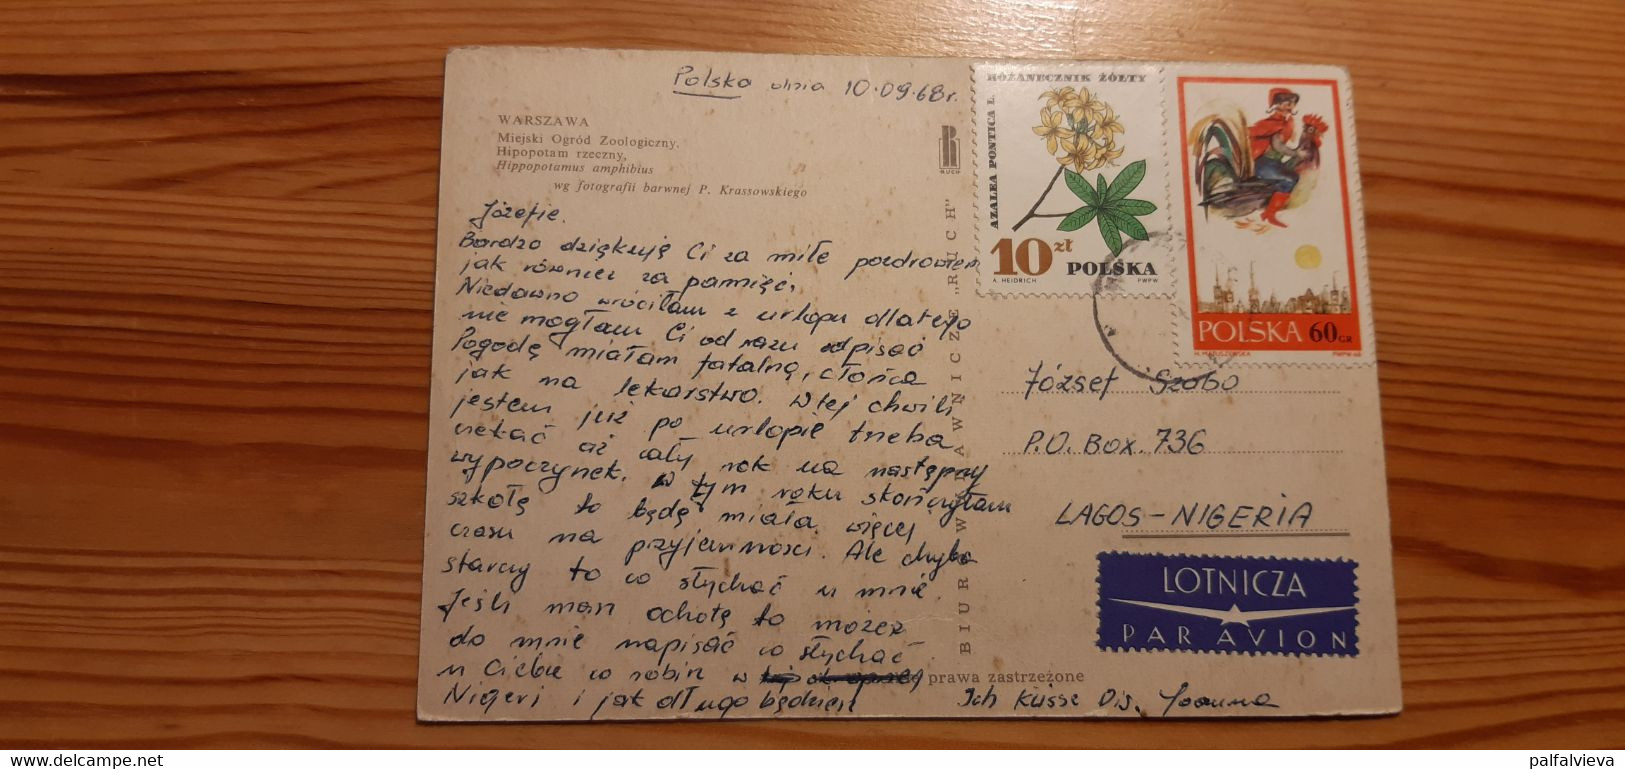 Polska dnia 10.09.68r.
WARSZAWA
Miejski Ogród Zoologiczny.
Hipopotam rzeczny,
Hippopotamus amphibius
wg fotografii barwnej P. Krassowskiego
RUCH
BIURO WYDAWNICZE „RUCH"
prawa zastrzeżone
Józefie.
Bardzo dziękuję Ci za miłe pozdrowien
jak również za pamięć,
Niedawno wróciłam z urlopu dlatego
nie mogłam Ci od razu odpisać
Pogodę miałam fatalną, słońca
jak na lekarstwo. W tej chwili
jestem już po urlopie trzeba
czekać aż cały rok na następny
wypoczynek. W tym roku skończyłam
szkołę to będę miała więcej
czasu na przyjemności. Ale chyba
starczy to co słychać u mnie.
Jeśli masz ochotę to możesz
do mnie napisać co słychać
u Ciebie co robisz w
Nigeri i jak długo będziesz
Ich küsse Dis, Joanna
RÓŻANECZNIK ŻÓŁTY
AZALEA PONTICA L.
10 zł
POLSKA
A. HEIDRICH PWPW
POLSKA 60 GR
H. MATUSZEWSKA PWPW-68
József Szabo
P.O. Box. 736
LAGOS-NIGERIA
LOTNICZA
PAR AVION
delcampe.net
palfalvieva